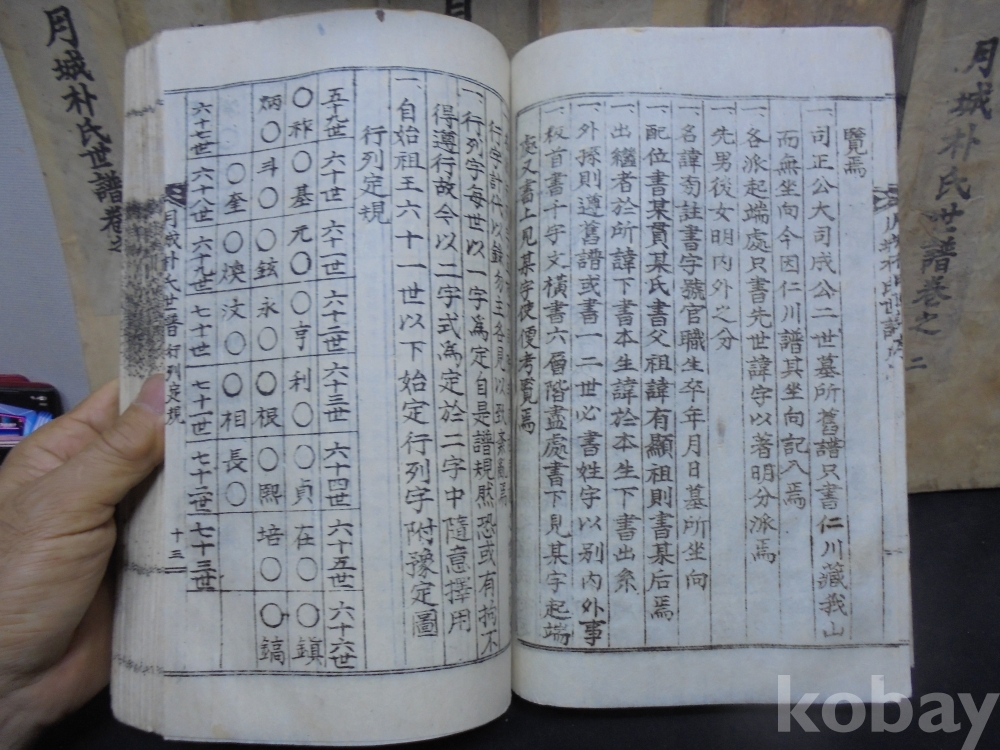 月城朴氏世譜卷之二
月城朴氏世譜卷之
覽焉
一司正公大司成公二世墓所舊譜只書仁川藏我山
而無坐向今因仁川譜其坐向記入焉
一各派起端處只書先世諱字以著明分派焉
一先男後女明內外之分
一名諱旁註書字號官職生卒年月日墓所坐向
一配位書某貫某氏書父祖諱有顯祖則書某后焉
一出繼者於所諱下書本生諱於本生下書出系
一外孫則遵舊譜或書一二世必書姓字以別內外事
一板首書千字文橫書六層階盡處書下見某字起端
處又書上見某字使便考覽焉
一行列字每世以一字爲定自是譜規然恐或有拘不
得遵行故今以二字式爲定於二字中隨意擇用
一自始祖王六十一世以下始定行列字附豫定圖
行列定規
五十九世 六十世 六十一世 六十二世 六十三世 六十四世 六十五世 六十六世
〇祚 〇基 元〇 〇亨 利〇 〇貞 在〇 〇鎭
炳〇 斗〇 〇鉉 永〇 〇根 〇熙 培〇 〇鎬
六十七世 六十八世 六十九世 七十世 七十一世 七十二世 七十三世
〇奎 〇煥 汶〇 〇相 長〇
月城朴氏世譜 行列定規 十三
kobay